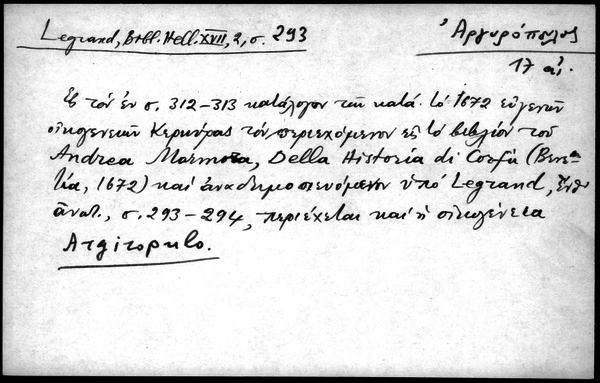 Legrand, Bibl. Hell. XVII, 2, σ. 293
Ἀργυρόπουλος
17 αἰ.
Εἰς τὸν ἐν σ. 312-313 κατάλογον τῶν κατὰ τὸ 1672 εὐγενῶν
οἰκογενειῶν Κερκύρας τὸν περιεχόμενον εἰς τὸ βιβλίον τοῦ
Andrea Marmora, Della Historia di Corfù (Βενε-
τία, 1672) καὶ ἀναδημοσιευόμενον ὑπὸ Legrand, ἔνθ'
ἀνωτ., σ. 293-294, περιέχεται καὶ ἡ οἰκογένεια
Argiropulo.